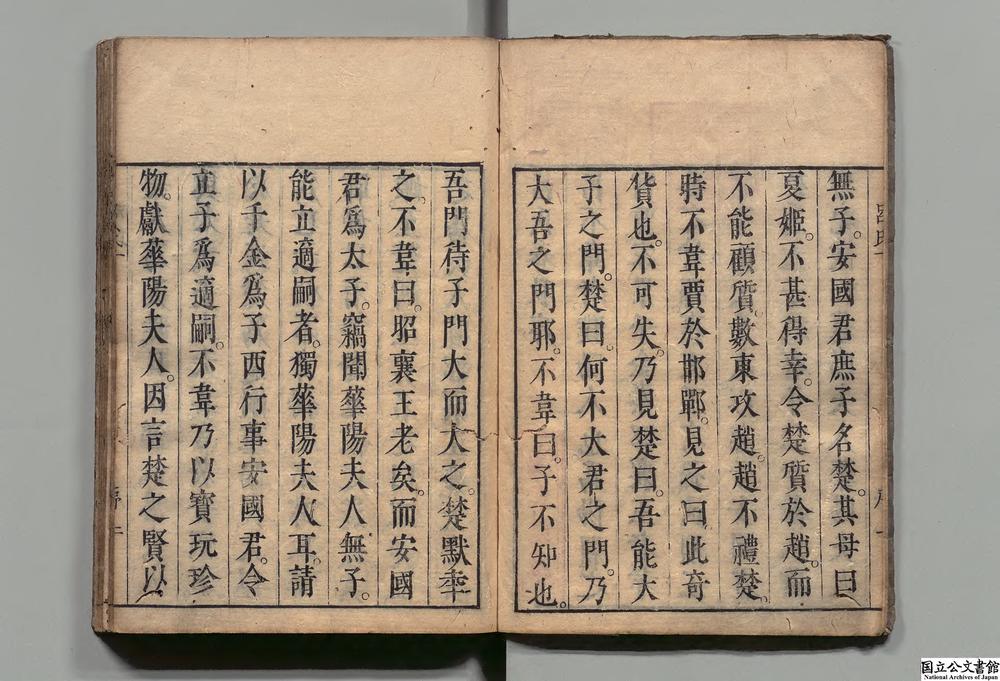 無子。安國君庶子名楚。其母曰
夏姬。不甚得幸。令楚質於趙。而
不能顧質。數東攻趙。趙不禮楚。
時不韋賈於邯鄲。見之曰此奇
貨也。不可失。乃見楚曰。吾能大
子之門。楚曰。何不大君之門。乃
大吾之門耶。不韋曰。子不知也。
吾門待子門大而大之。楚默幸
之。不韋曰。昭襄王老矣。而安國
君爲太子。竊聞華陽夫人無子。
能立適嗣者。獨華陽夫人耳。請
以千金爲子西行事安國君。令
立子爲適嗣。不韋乃以寶玩珍
物。獻華陽夫人。因言楚之賢以
国立公文書館
National Archives of Japan